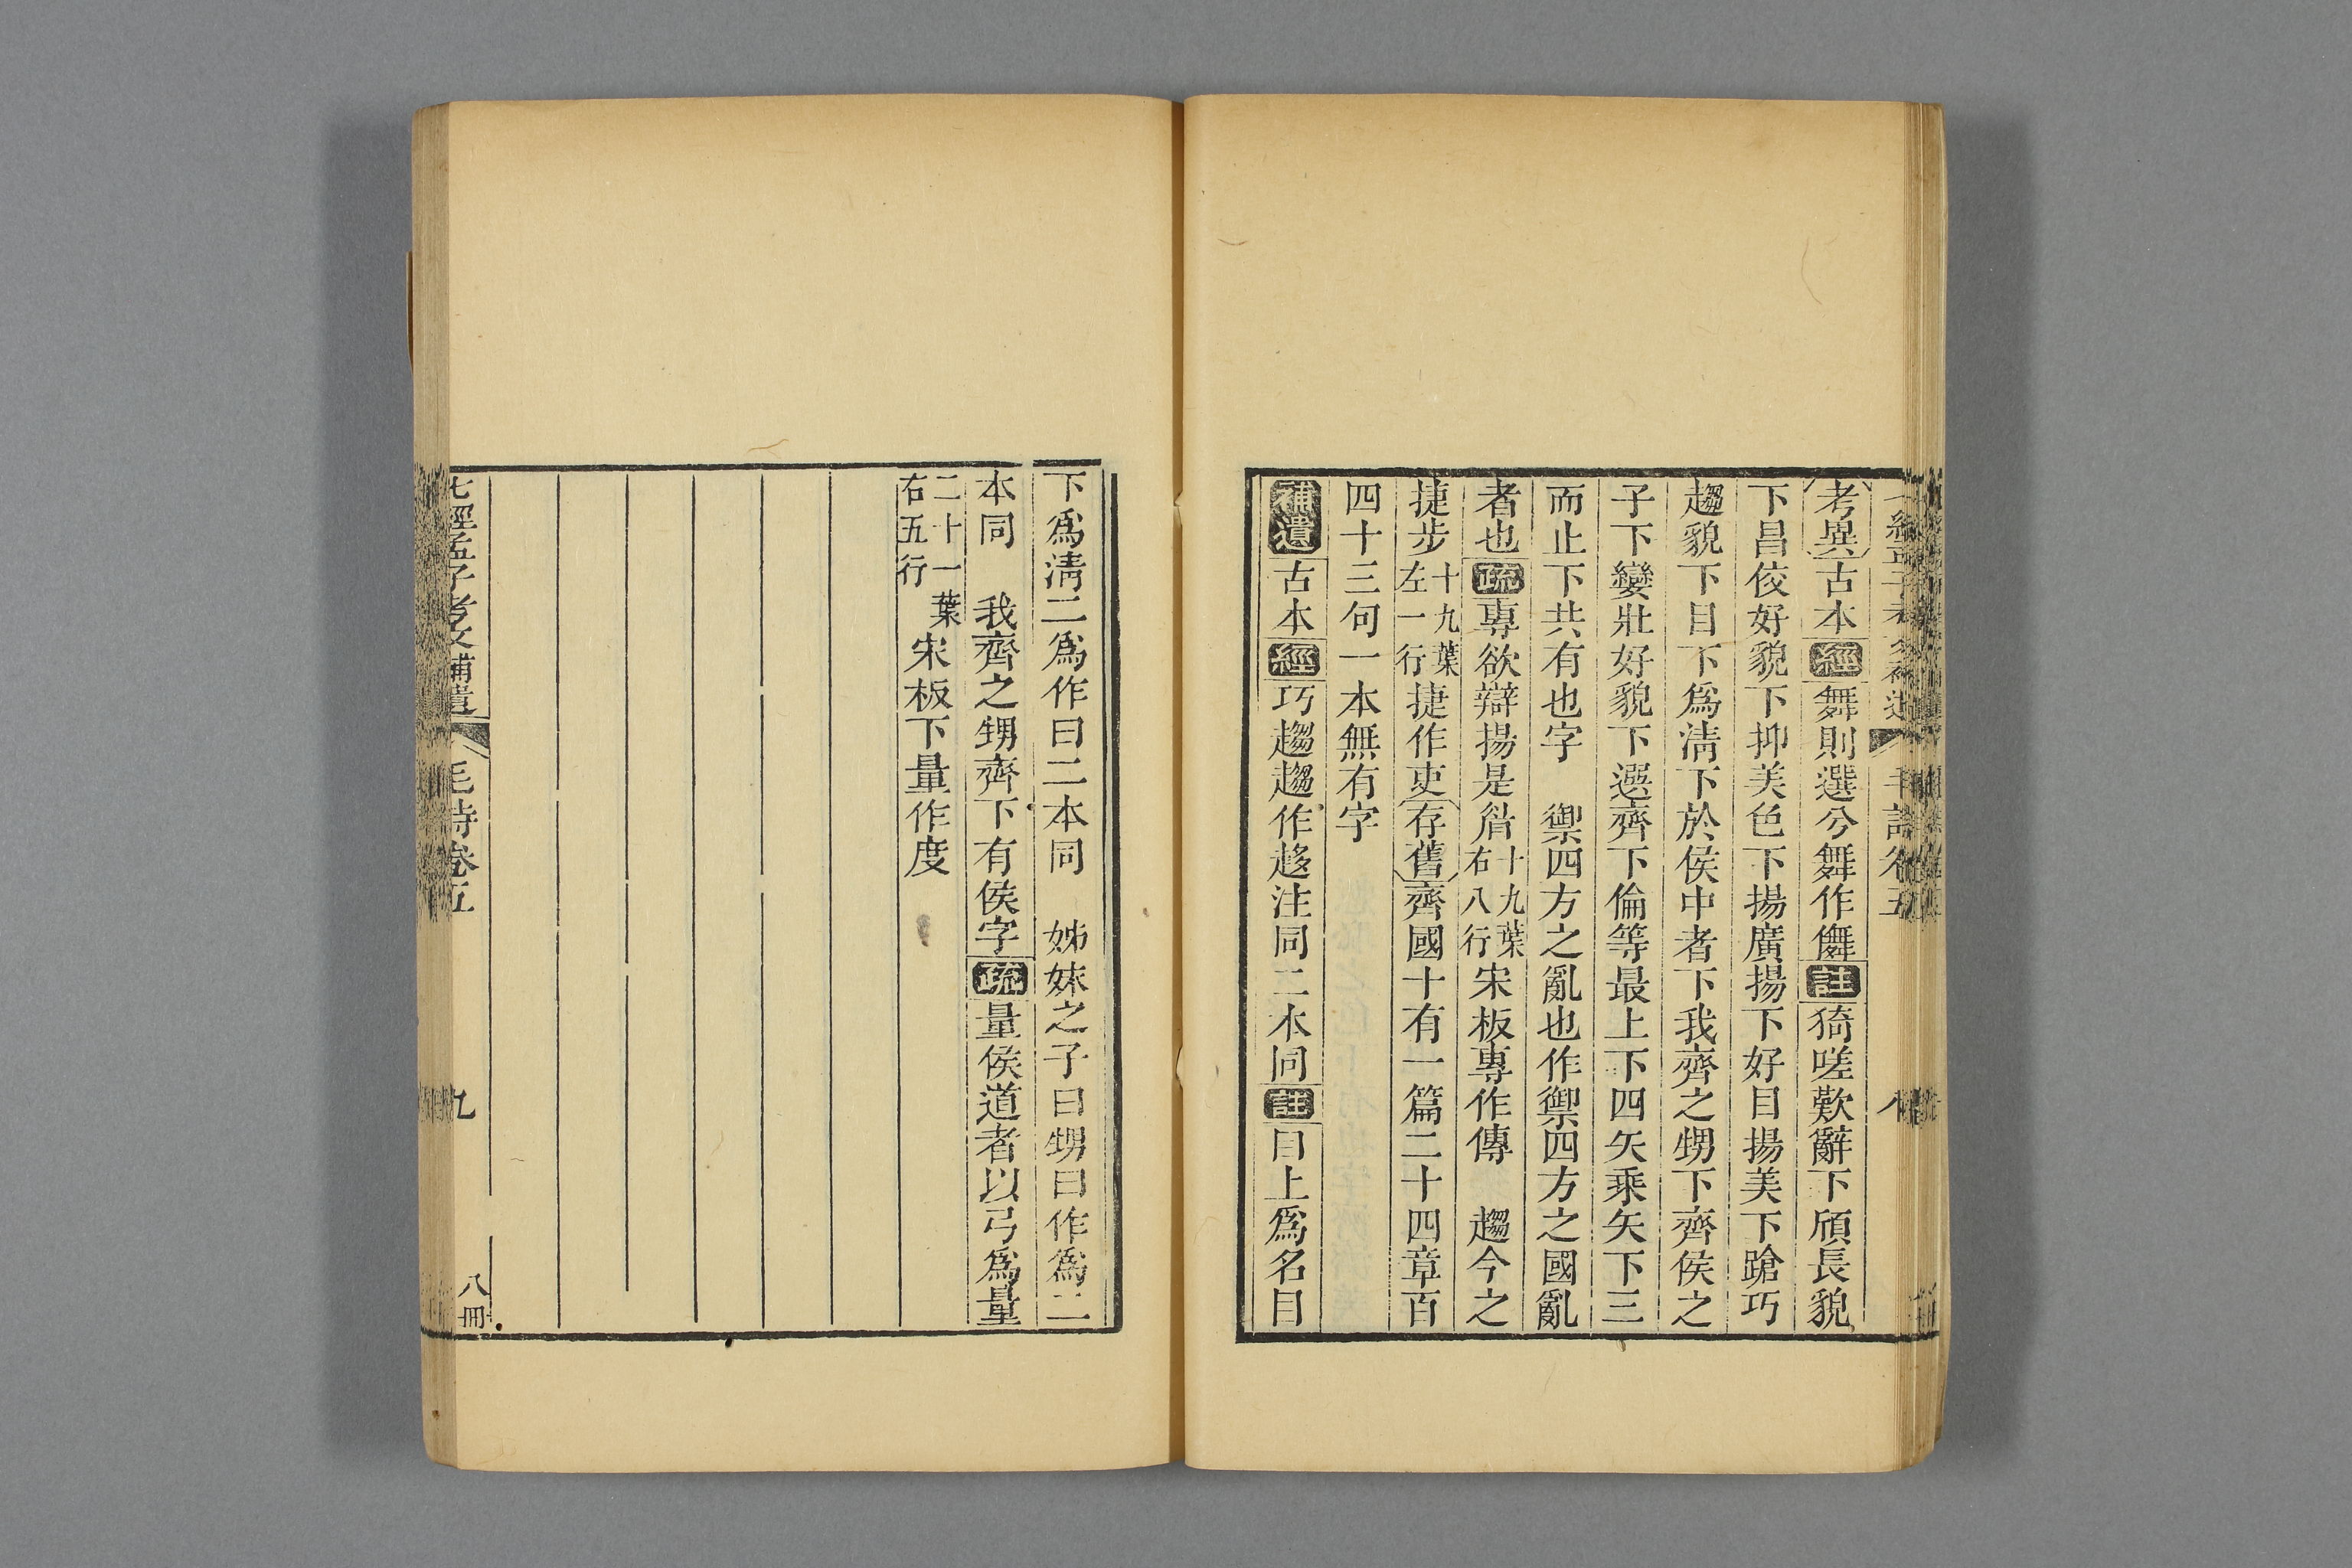 考異古本經舞則選兮舞作儛註猗嗟歎辭下頎長貌
下昌佼好貌下抑美色下揚廣揚下好目揚美下蹌巧
趨貌下目下爲淸下於侯中者下我齊之甥下齊侯之
子下孌壯好貌下選齊下倫等最上下四矢乘矢下三
而止下共有也字　禦四方之亂也作禦四方之國亂
者也疏專欲辯揚是眉十九葉右八行宋板專作傳　趨今之
捷步十九葉左一行捷作吏存舊齊國十有一篇二十四章百
四十三句一本無有字
補遺古本經巧趨趨作趍注同二本同註目上爲名目
下爲淸二爲作曰二本同　姊妹之子曰甥曰作爲二
本同　我齊之甥齊下有侯字疏量侯道者以弓爲量
二十一葉右五行宋板下量作度
七經孟子考文補遺　毛詩卷五　九　八冊